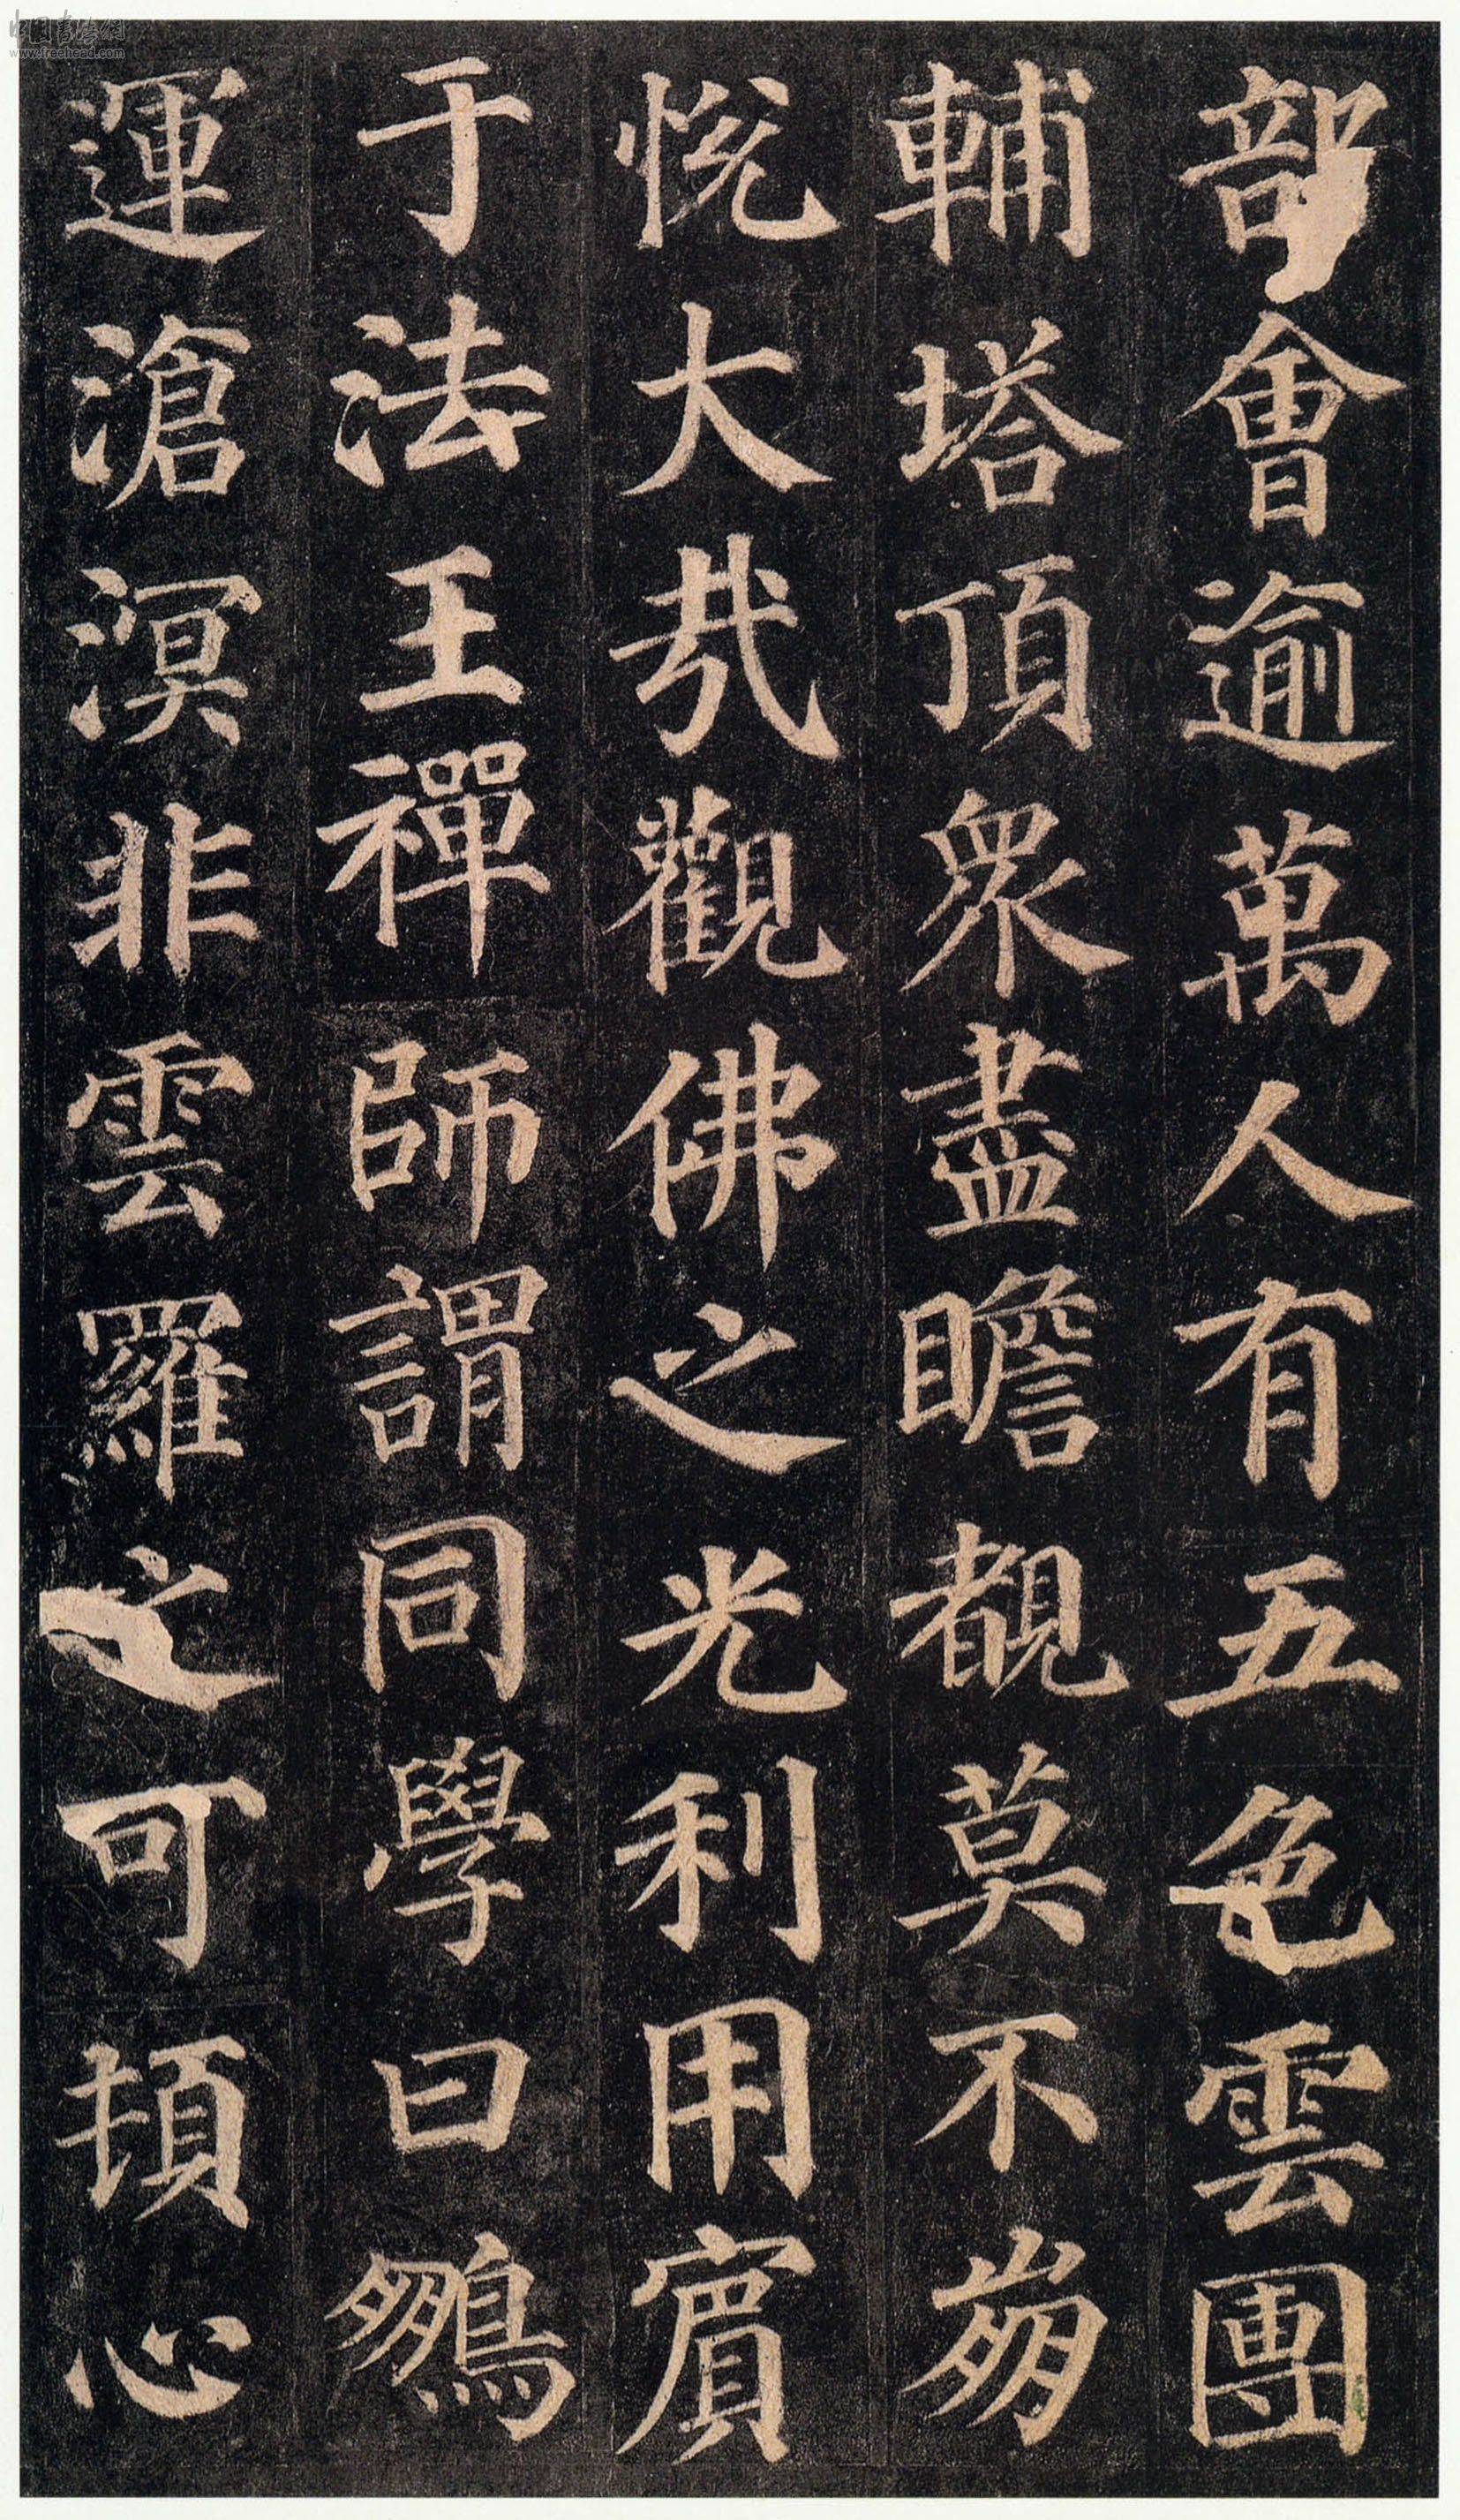 部會逾萬人有五色雲團
輔塔頂眾盡瞻覩莫不崩
悅大哉觀佛之光利用賓
于法王禪師謂同學曰鵬
運滄溟非雲羅之可頓心
中国书法网
www.freehead.com